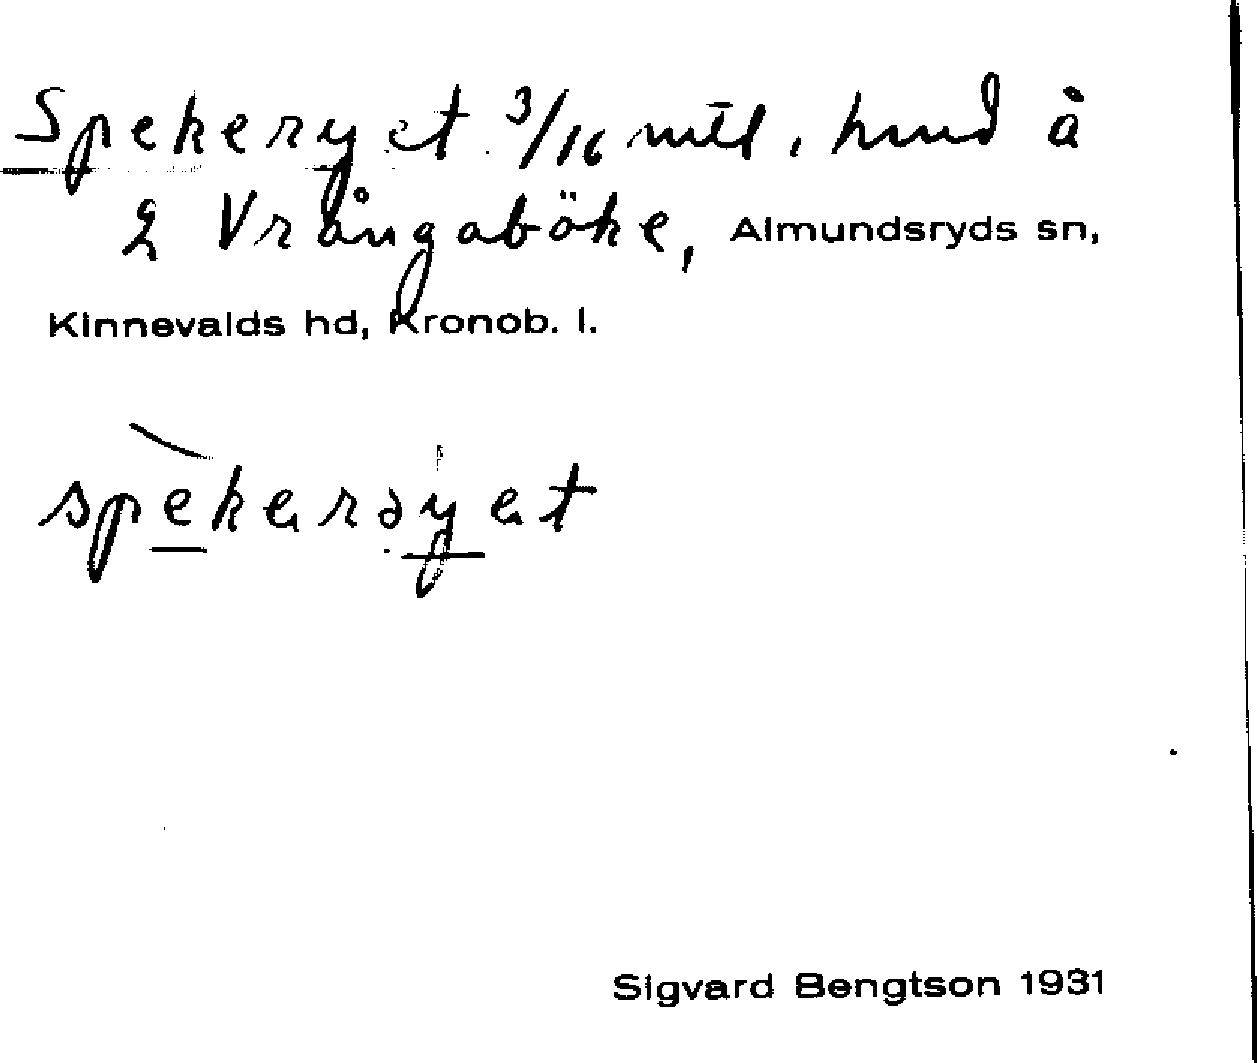 Spekeryet 3/16 mtl, hmd å
2 Vrångaböke, Almundsryds sn,
Kinnevalds hd, Kronob. l.
spèkerəyet
Sigvard Bengtson 1931